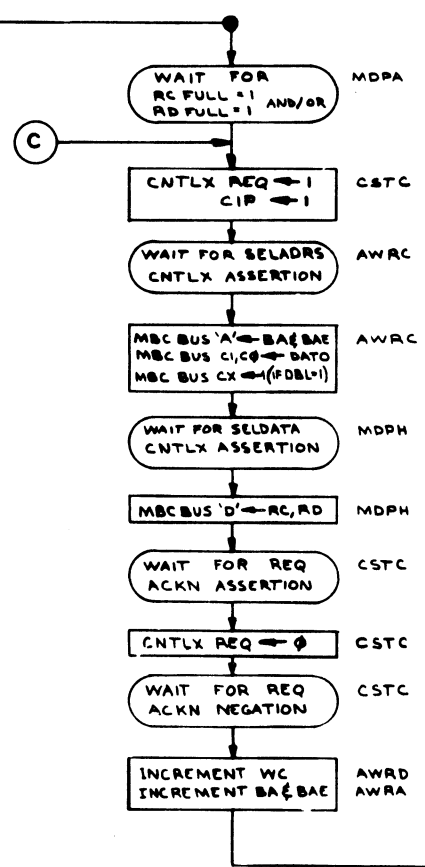 WAIT FOR
RC FULL = 1
AND/OR
RD FULL = 1
MDPA
C
CNTLX REQ ← 1
CIP ← 1
CSTC
WAIT FOR SELADRS
CNTLX ASSERTION
AWRC
MBC BUS 'A' ← BA & BAE
MBC BUS C1, CØ ← DATO
MBC BUS CX ← 1 (IF DBL=1)
AWRC
WAIT FOR SELDATA
CNTLX ASSERTION
MDPH
MBC BUS 'D' ← RC, RD
MDPH
WAIT FOR REQ
ACKN ASSERTION
CSTC
CNTLX REQ ← Ø
CSTC
WAIT FOR REQ
ACKN NEGATION
CSTC
INCREMENT WC
AWRD
INCREMENT BA & BAE
AWRA